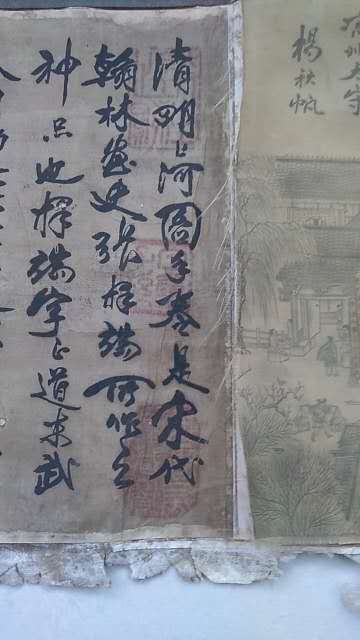 楊秋帆
清明上河圖手卷是宋代
翰林畫史張擇端所作之
神品也擇端字正道東武